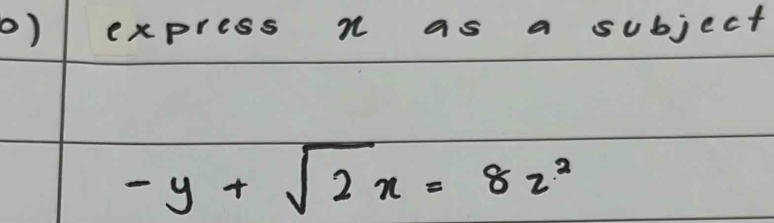 b) express x as a subject
-y + √2x = 8z²